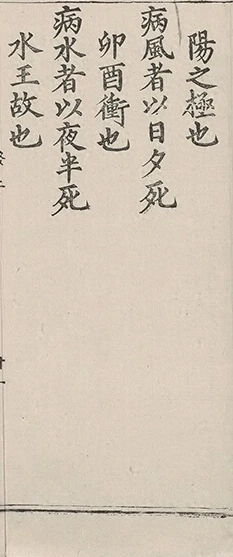 陽之極也
病風者以日夕死
卯酉衝也
病水者以夜半死
水王故也